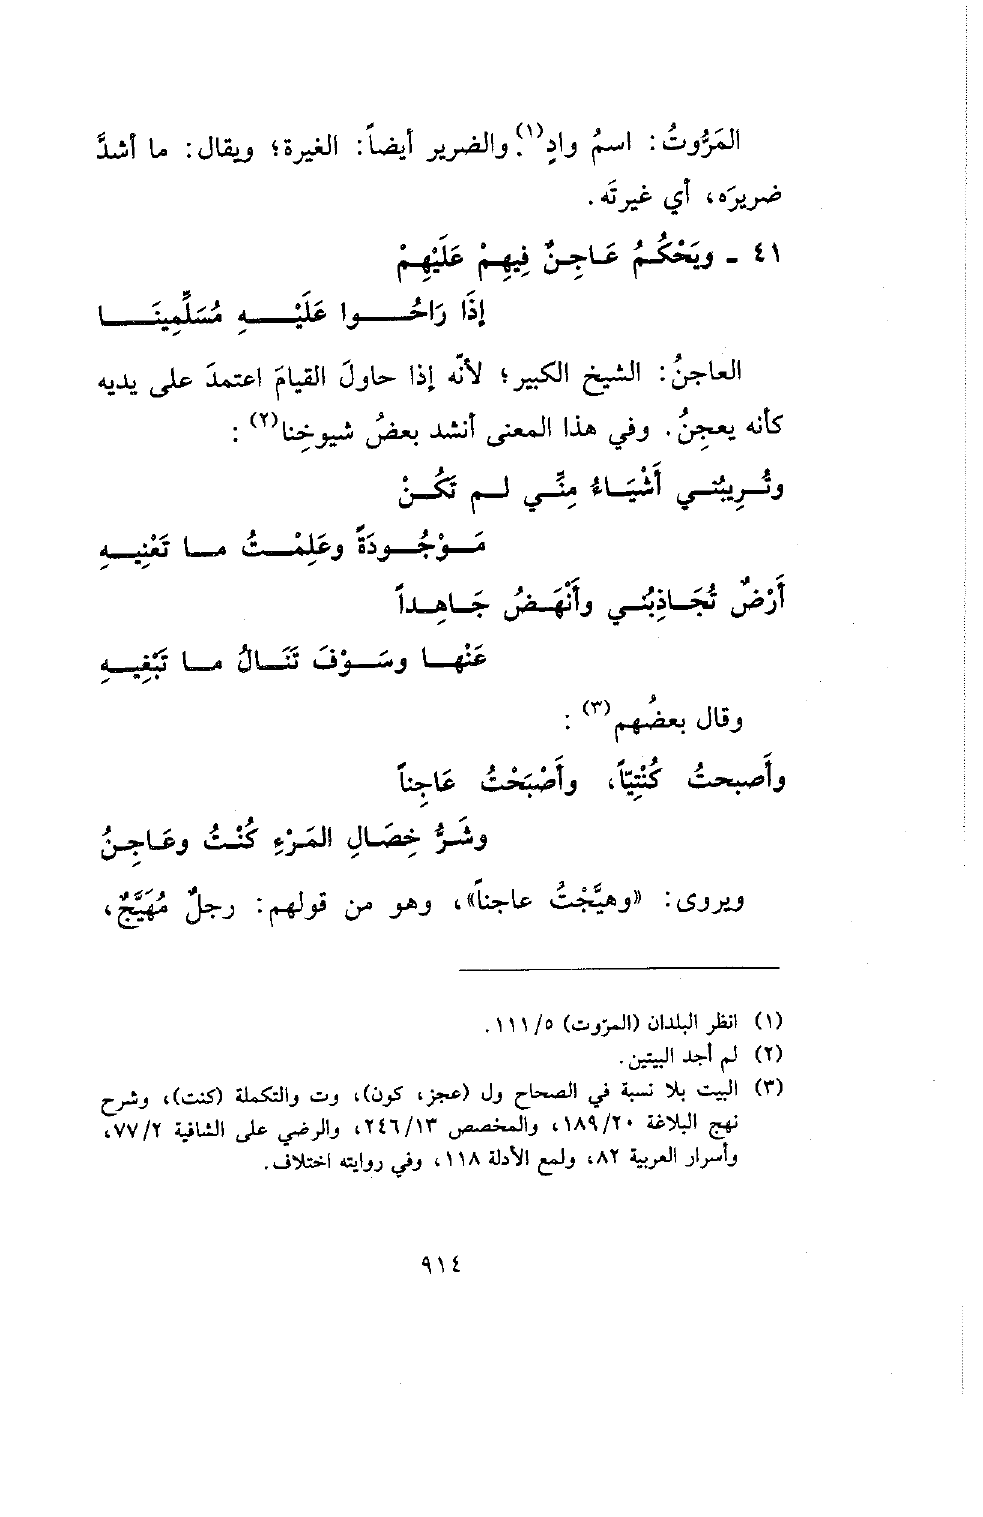 المَرُّوتُ: اسمُ وادٍ(١). والضرير أيضاً: الغيرة؛ ويقال: ما أشدَّ
ضريرَه، أي غيرتَه.
٤١ ـ ويَحْكُمُ عَاجِنٌ فِيهِمْ عَلَيْهِمْ
إذَا رَاحُوا عَلَيْهِ مُسَلِّمِينَا
العاجنُ: الشيخ الكبير؛ لأنّه إذا حاولَ القيامَ اعتمدَ على يديه
كأنه يعجِنُ. وفي هذا المعنى أنشد بعضُ شيوخِنا(٢):
وتُرِيبُني أَشْيَاءُ مِنِّي لم تَكُنْ
مَوْجُودَةً وعَلِمْتُ ما تَعْنِيهِ
أَرْضٌ تُجَاذِبُني وأَنْهَضُ جَاهِداً
عَنْها وسَوْفَ تَنَالُ ما تَبْغِيهِ
وقال بعضُهم(٣):
وأَصبحتُ كُنْتِيّاً، وأَصْبَحْتُ عَاجِناً
وشَرُّ خِصَالِ المَرْءِ كُنْتُ وعَاجِنُ
ويروى: «وهيَّجْتُ عاجناً»، وهو من قولهم: رجلٌ مُهَيَّجٌ،
(١) انظر البلدان (المرّوت) ١١١/٥.
(٢) لم أجد البيتين.
(٣) البيت بلا نسبة في الصحاح ول (عجز، كون)، وت والتكملة (كنت)، وشرح
نهج البلاغة ١٨٩/٢٠، والمخصص ٢٤٦/١٣، والرضي على الشافية ٧٧/٢،
وأسرار العربية ٨٢، ولمع الأدلة ١١٨، وفي روايته اختلاف.
٩١٤